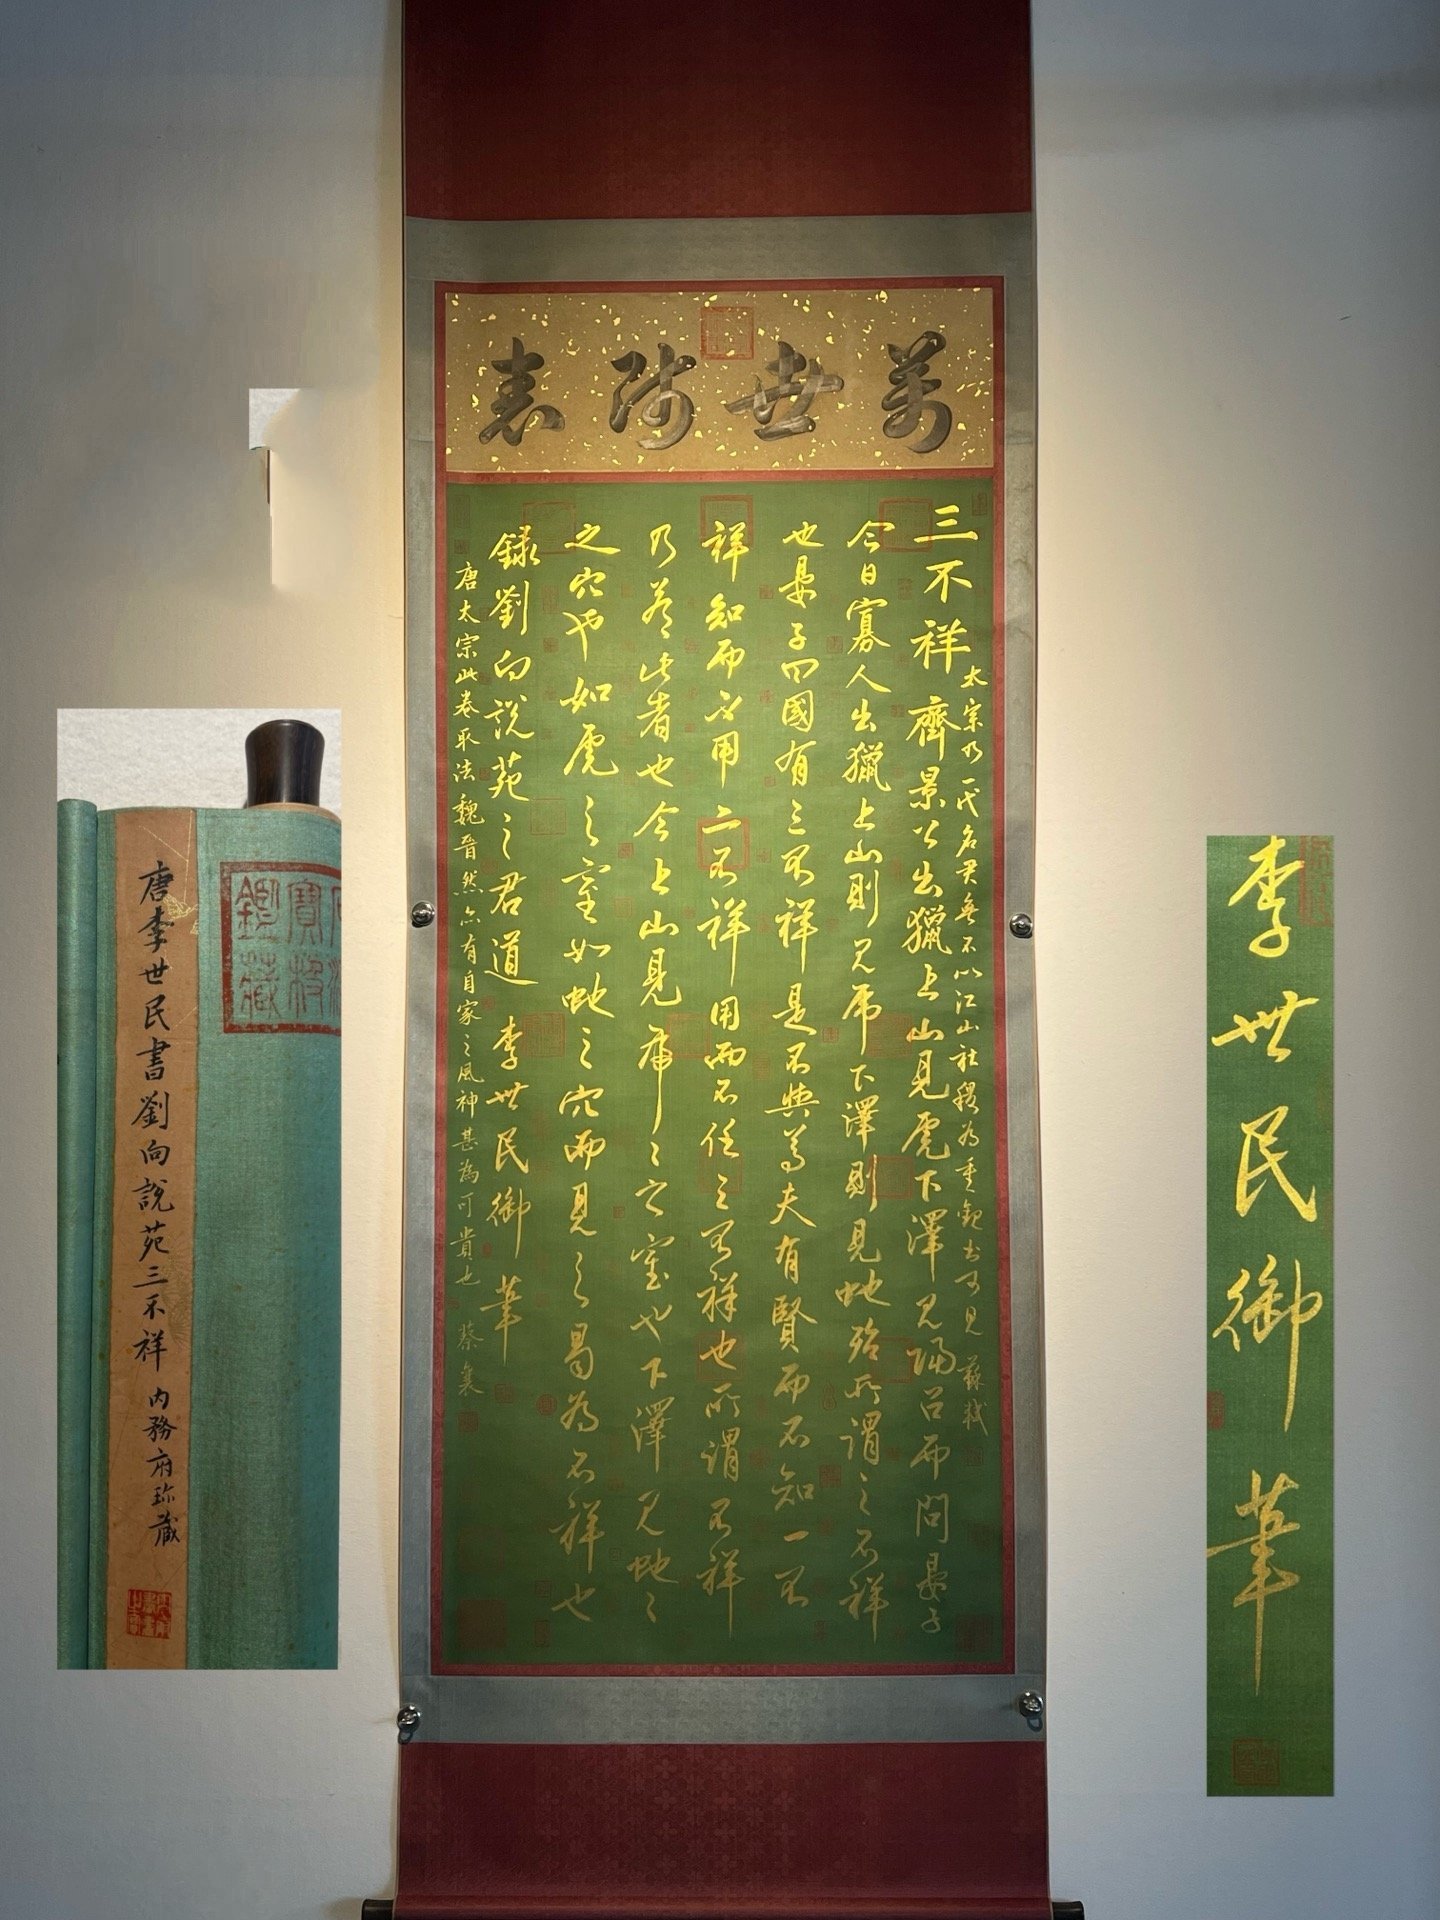 萬世師表
三不祥 齊景公出獵上山見虎下澤見蛇召而問晏子
今日寡人出獵上山則見虎下澤則見蛇殆所謂之不祥
也晏子曰國有三不祥是不與焉夫有賢而不知一不
祥知而不用二不祥用而不任三不祥也所謂不祥
乃若此者也今上山見虎虎之室也下澤見蛇蛇
之穴也如虎之室如蛇之穴而見之曷為不祥也
錄劉向說苑之君道 李世民御筆
太宗乃一代名君無不以江山社稷為重觀書可見 蘇軾
唐太宗此卷取法魏晉然亦有自家之風神甚為可貴也 蔡襄
唐李世民書劉向說苑三不祥 內務府珍藏
寶笈
鑑藏
李世民御筆